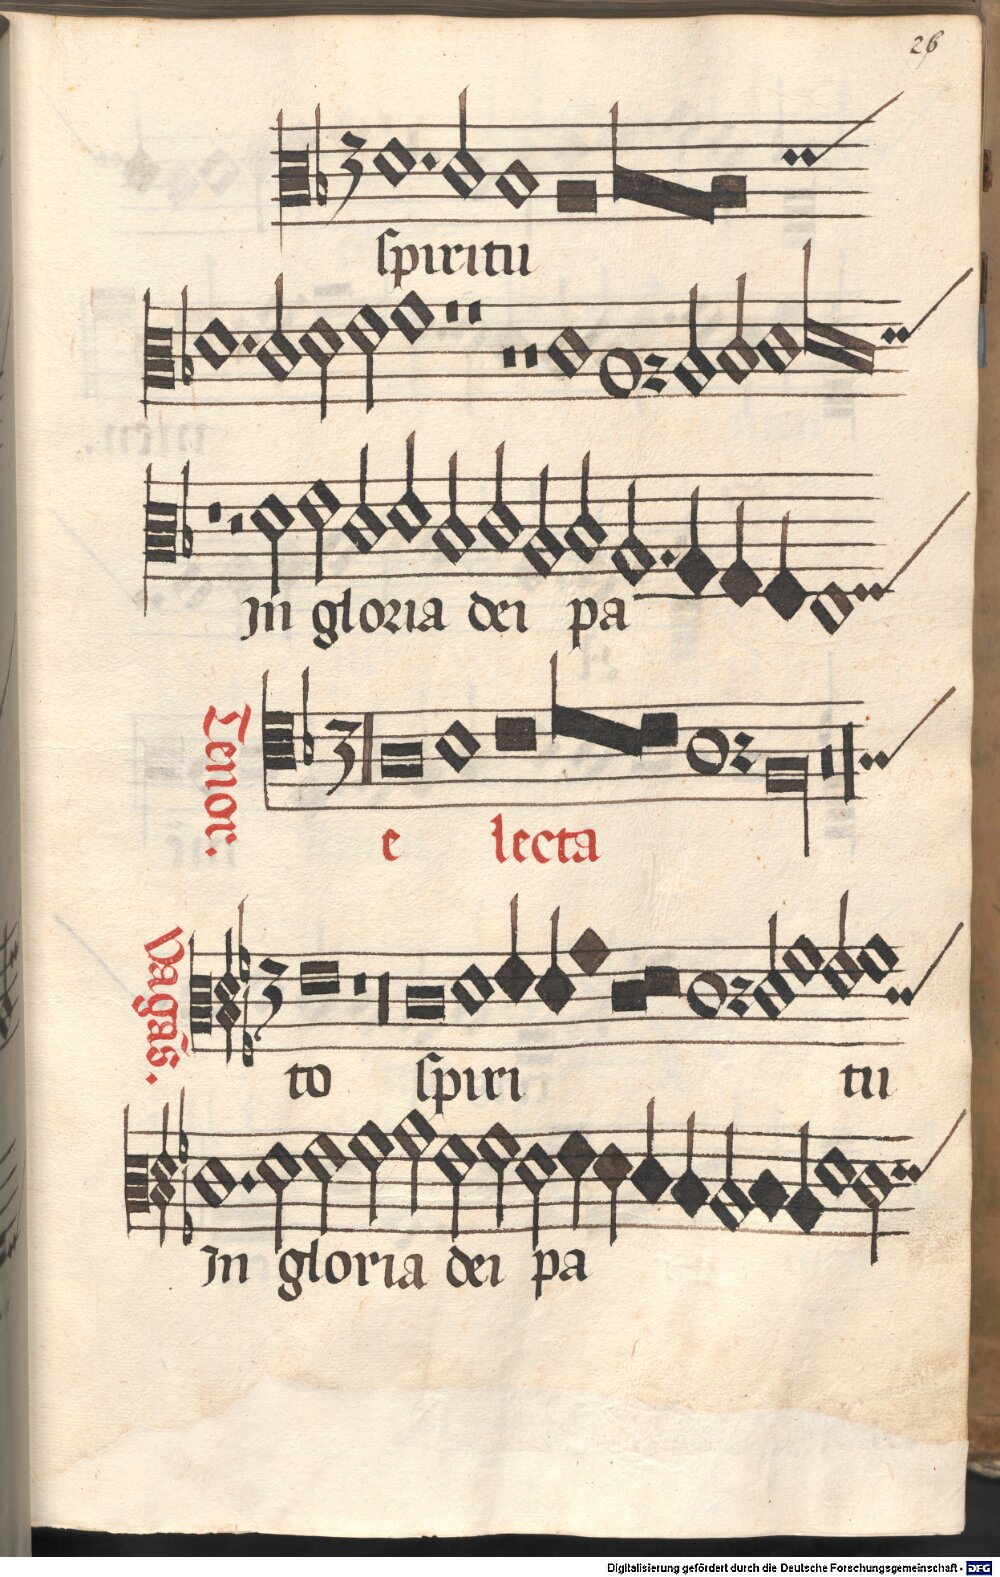 26
spiritu
In gloria dei pa
Tenor.
e lecta
Vagās.
to spiri tu
In gloria dei pa
Digitalisierung gefördert durch die Deutsche Forschungsgemeinschaft - DFG